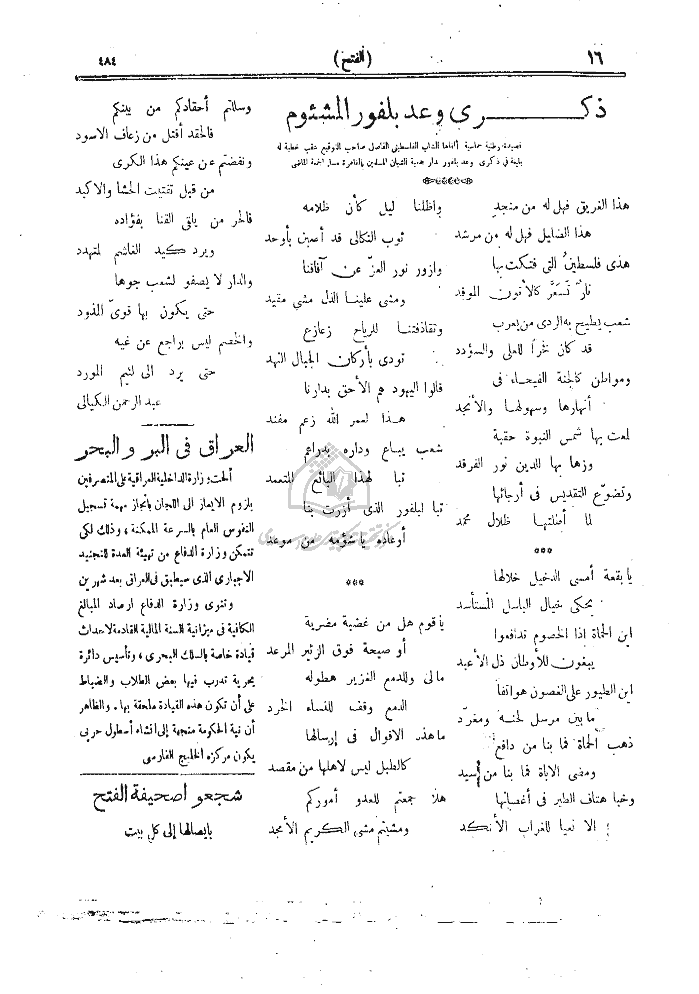 ١٦
(الفتح)
٤٨٤
ذكـــــرى وعد بلفور المشئوم
قصيدة وطنية حماسية ألقاها الشاب الفلسطيني الفاضل صاحب التوقيع عقب خطبة له
بليغة في ذكرى وعد بلفور بدار جمعية الشبان المسلمين بالقاهرة مساء الجمعة الماضي
هذا الغريق فهل له من منجد
هذا الضليل فهل له من مرشد
هذى فلسطينُ التى فتكت بها
نارٌ تَسَعّرَ كالأتون الموقد
شعب يطيح به الردى من يعرب
قد كان فخراً للعلى والسؤدد
ومواطن كالجنة الفيحاء فى
أنهارها وسهولها والأنجد
لمعت بها شمس النبوة حقبة
وزها بها للدين نور الفرقد
وتضوّع التقديس فى أرجائها
لما أظلتها ظلال محمد
***
يا بقعة أمسى الدخيل خلالها
يحكى خيال الباسل المستأسد
اين الحماة اذا الخصوم تدافعوا
يبغون للأوطان ذل الأعبد
اين الطيور على الغصون هواتفاً
ما بين مرسل لحنه ومغرّد
ذهب الحماة فما بنا من دافع
ومضى الاباة فما بنا من سيد
وخبا هتاف الطير فى أغصانها
إلا نعيا للغراب الأنكد
وأظلنا ليل كأن ظلامه
ثوب الثكالى قد أعين بأوحد
وازور نور العزّ عن آفاقنا
ومشى علينا الذل مشى مقيد
وتقاذفتنا للرياح زعازع
تودى بأركان الجبال النهد
قالوا اليهود هم الأحق بدارنا
هذا لعمر الله زعم مفند
شعب يباع وداره بدراهم
تبا لهذا البائع المتعمد
تبا لبلفور الذى أزرت بنا
أوعاده يا شؤمه من موعد
***
يا قوم هل من غضبة مضرية
أو صيحة فوق الزئير المرعد
مالى وللدمع الغزير هطوله
الدمع وقف للنساء الخرد
ما هذه الاقوال فى إرسالها
كالطبل ليس لاهلها من مقصد
هلا جمعتم للعدو أموركم
ومشيتم مشى الكريم الأمجد
وسللتم أحقادكم من بينكم
فالحقد أقتل من زعاف الاسود
ونفضتم عن عينكم هذا الكرى
من قبل تفتيت الحشا والاكبد
فالحر من يلقى القنا بفؤاده
ويرد كيد الغاشم المتهدد
والدار لا يصفو لشعب جوها
حتى يكون بها قوىّ المذود
والخصم ليس براجع عن غيه
حتى يرد الى لئيم المورد
عبد الرحمن الكيالى
العراق فى البر والبحر
ألحت وزارة الداخلية العراقية على المتصرفين
بلزوم الايعاز الى اللجان بانجاز مهمة تسجيل
النفوس العام بالسرعة الممكنة ، وذلك لكى
تتمكن وزارة الدفاع من تهيئة العدة للتجنيد
الاجبارى الذى سيطبق فى العراق بعد شهرين
وتنوى وزارة الدفاع ارصاد المبالغ
الكافية فى ميزانية السنة المالية القادمة لاحداث
قيادة خاصة بالسلك البحرى ، وتأسيس دائرة
بحرية تدرب فيها بعض الطلاب والضباط
على أن تكون هذه القيادة ملحقة بها . والظاهر
أن نية الحكومة متجهة إلى انشاء أسطول حربى
يكون مركزه الخليج الفارسى
شجعوا صحيفة الفتح
بايصالها إلى كل بيت